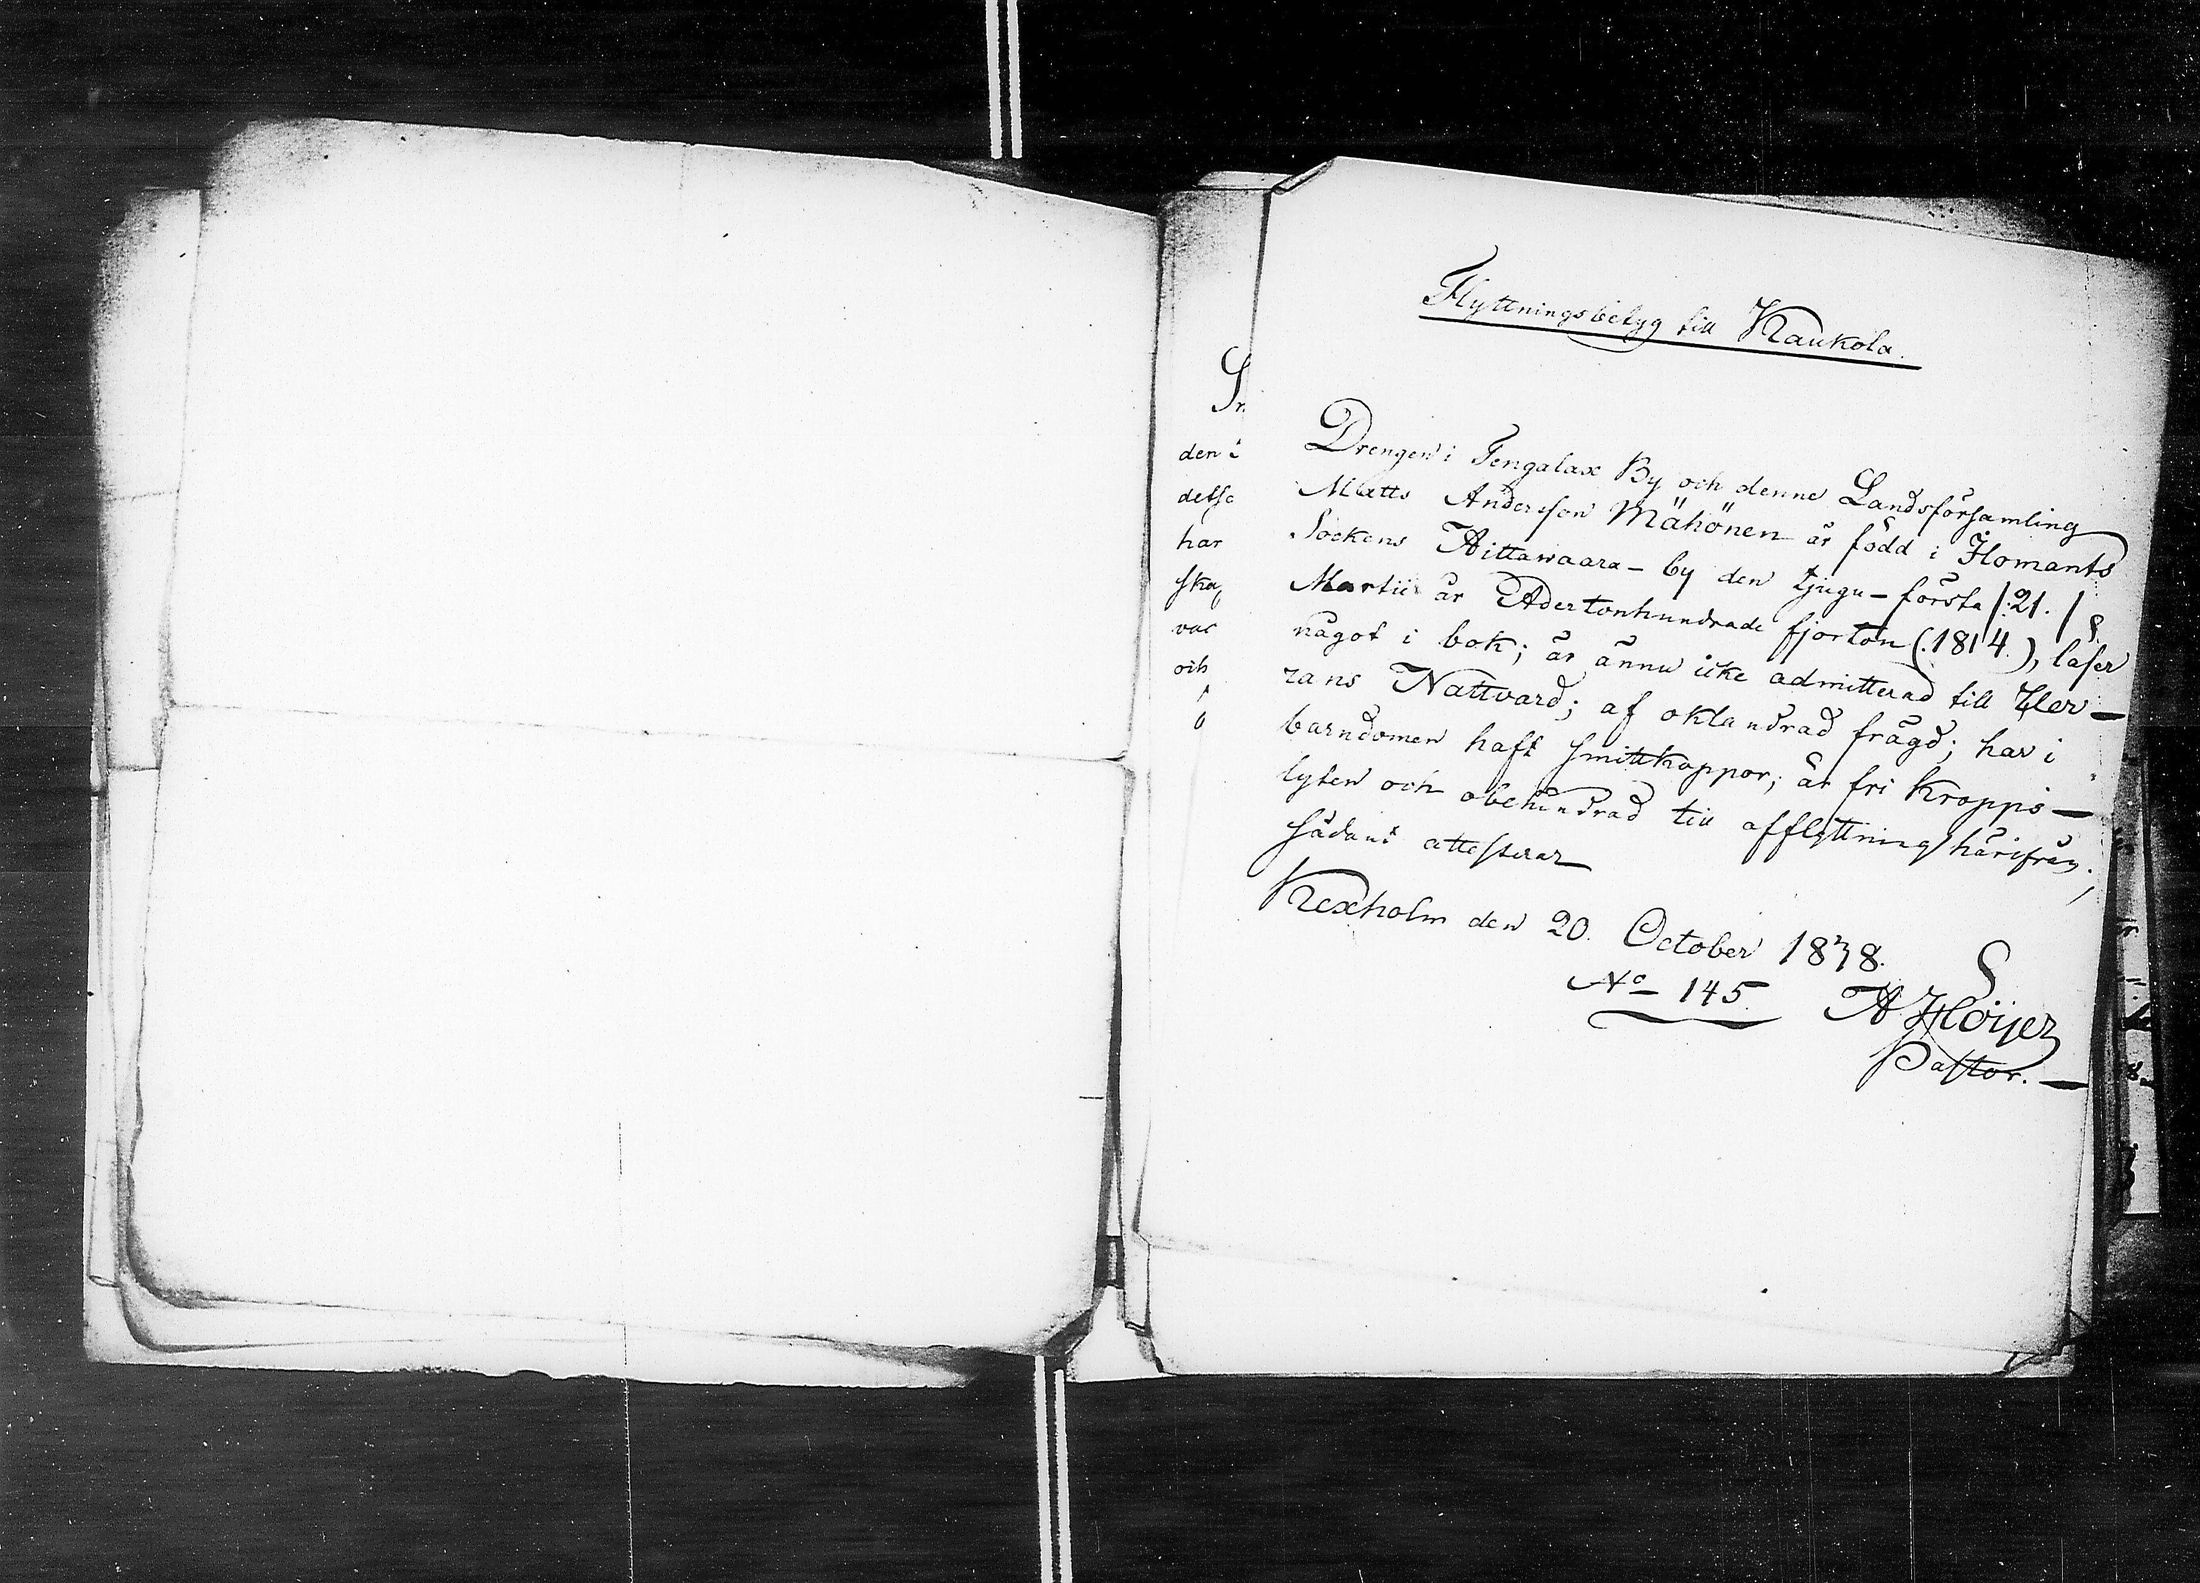 Flyttningsbetyg till Kaukola.
Drengen i Tengalax By och denne Landsförsamling
Matts Andersson Mähönen är född i Ilomants
Sockens Aittawaara-by den tjugu-första /:21./
Martii år Adertonhundrade fjorton (.1814.), läser
något i bok; är ännu icke admitterad till Her-
rans Nattvard; af oklandrad frägd; har i
barndomen haft smittkoppor; är fri kropps-
lyten och obehindrad till afflyttning härifrån;
sådant attesterar
Kexholm den 20. October 1838.
No 145. A Höijer
Pastor.
den
har
ska
var
och